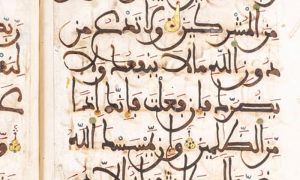 من المشركين ولا تدع من
دون الله ما لا ينفعك ولا
يضرك فإن فعلت فإنك إذا
من الظلمين وإن يمسسك الله